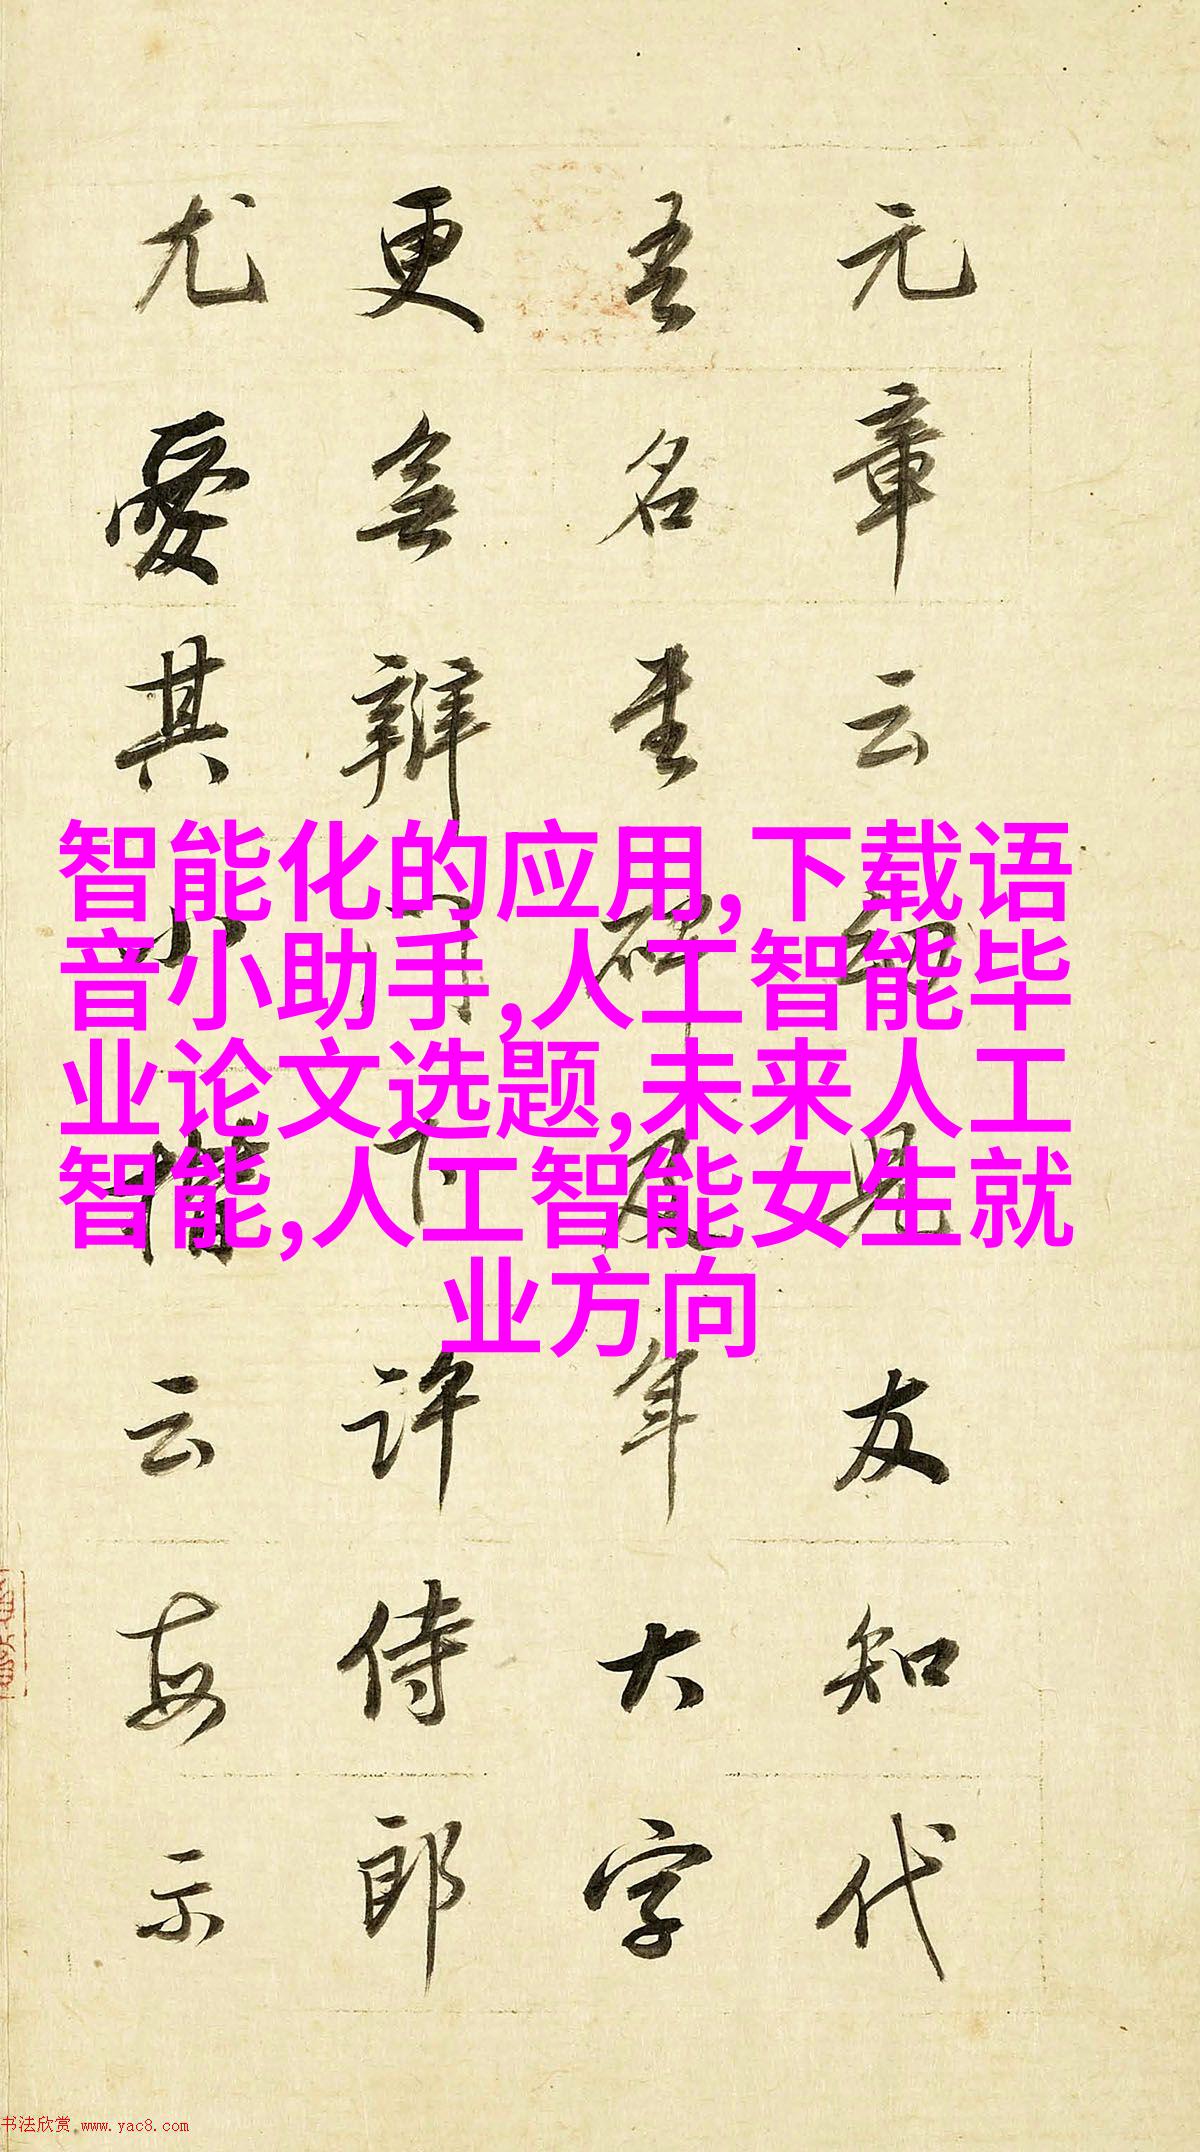 元章云幼見友知代
吾名書碑及年大字
更無辨門下許侍郎
尤愛其小楷云每示
智能化的应用,下载语
音小助手,人工智能毕
业论文选题,未来人工
智能,人工智能女生就
业方向
书法欣赏 www.yac8.com